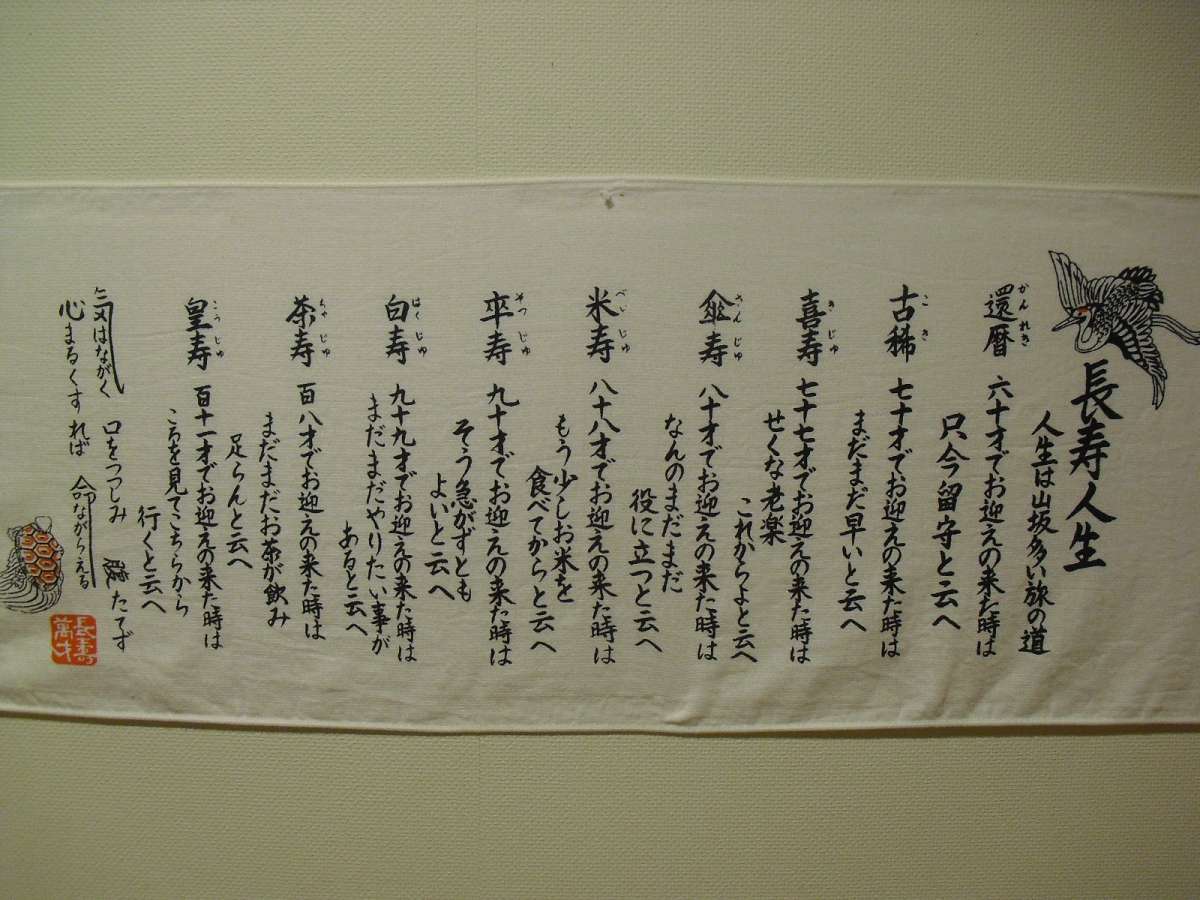 長寿人生
人生は山坂多い旅の道
還暦 六十才でお迎えの来た時は
かんれき
只今留守と云へ
古稀 七十才でお迎えの来た時は
こき
まだまだ早いと云へ
喜寿 七十七才でお迎えの来た時は
きじゅ
せくな老楽
これからよと云へ
傘寿 八十才でお迎えの来た時は
さんじゅ
なんのまだまだ
役に立つと云へ
米寿 八十八才でお迎えの来た時は
べいじゅ
もう少しお米を
食べてからと云へ
卒寿 九十才でお迎えの来た時は
そつじゅ
そう急がずとも
よいと云へ
白寿 九十九才でお迎えの来た時は
はくじゅ
まだまだやりたい事が
あると云へ
茶寿 百八才でお迎えの来た時は
ちゃじゅ
まだまだお茶が飲み
足らんと云へ
皇寿 百十一才でお迎えの来た時は
こうじゅ
ころを見てこちらから
行くと云へ
気はながく 口をつつしみ 腹たてず
心まるくすれば 命ながらえる
長寿
萬才